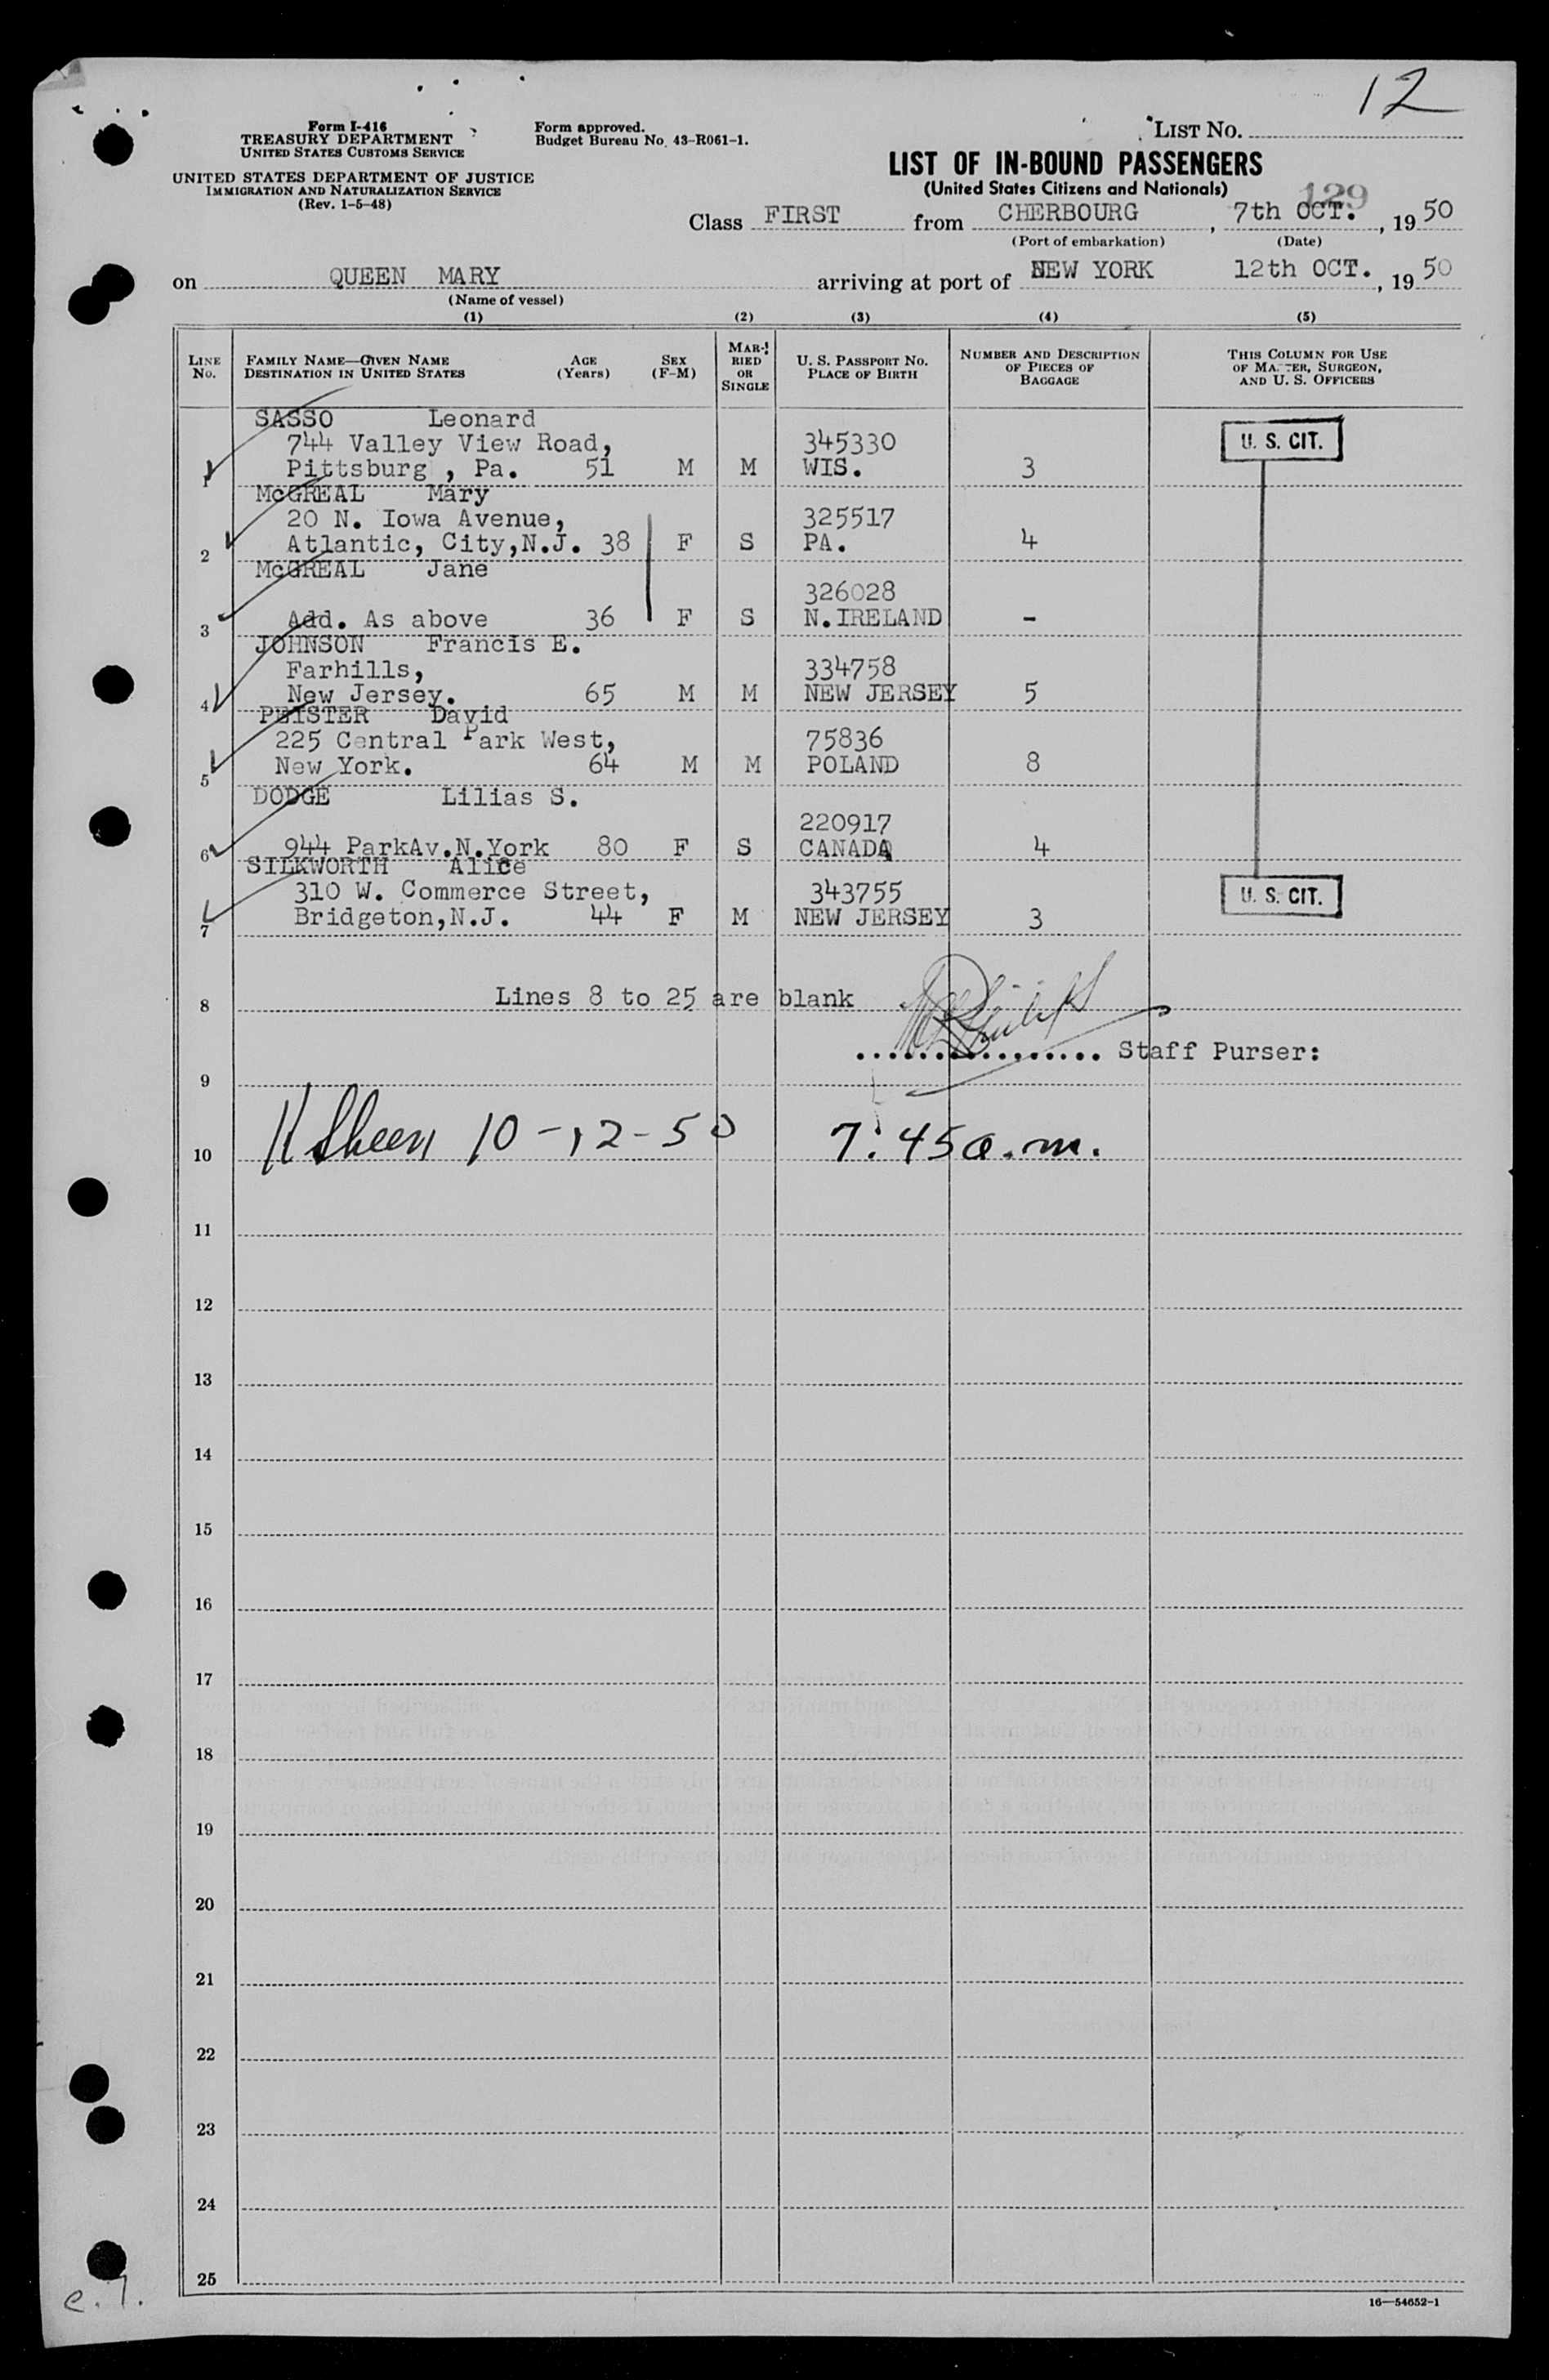 12
Form I-416
TREASURY DEPARTMENT
UNITED STATES CUSTOMS SERVICE
UNITED STATES DEPARTMENT OF JUSTICE
IMMIGRATION AND NATURALIZATION SERVICE
(Rev. 1-5-48)
Form approved.
Budget Bureau No. 43-R061-1.
LIST NO.
LIST OF IN-BOUND PASSENGERS
(United States Citizens and Nationals)
129
Class FIRST from CHERBOURG, 7th OCT., 19 50
(Port of embarkation) (Date)
on QUEEN MARY arriving at port of NEW YORK 12th OCT., 19 50
(Name of vessel)
(1) (2) (3) (4) (5)
LINE NO.
FAMILY NAME—GIVEN NAME
DESTINATION IN UNITED STATES
AGE (Years)
SEX (F-M)
MARRIED OR SINGLE
U. S. PASSPORT NO.
PLACE OF BIRTH
NUMBER AND DESCRIPTION
OF PIECES OF
BAGGAGE
THIS COLUMN FOR USE
OF MASTER, SURGEON,
AND U. S. OFFICERS
SASSO Leonard
744 Valley View Road, 345330 U. S. CIT.
1 Pittsburg , Pa. 51 M M WIS. 3
McGREAL Mary
20 N. Iowa Avenue, 325517
2 Atlantic, City,N.J. 38 F S PA. 4
McGREAL Jane
326028
3 Add. As above 36 F S N.IRELAND -
JOHNSON Francis E.
Farhills, 334758
4 New Jersey. 65 M M NEW JERSEY 5
PEISTER David
225 Central Park West, 75836
5 New York. 64 M M POLAND 8
DODGE Lilias S.
220917
6 944 ParkAv.N.York 80 F S CANADA 4
SILKWORTH Alice
310 W. Commerce Street, 343755 U. S. CIT.
7 Bridgeton,N.J. 44 F M NEW JERSEY 3
8 Lines 8 to 25 are blank
................ Staff Purser:
9
10 10-12-50 7:45 a.m.
11
12
13
14
15
16
17
18
19
20
21
22
23
24
25
e.1.
16—54652-1